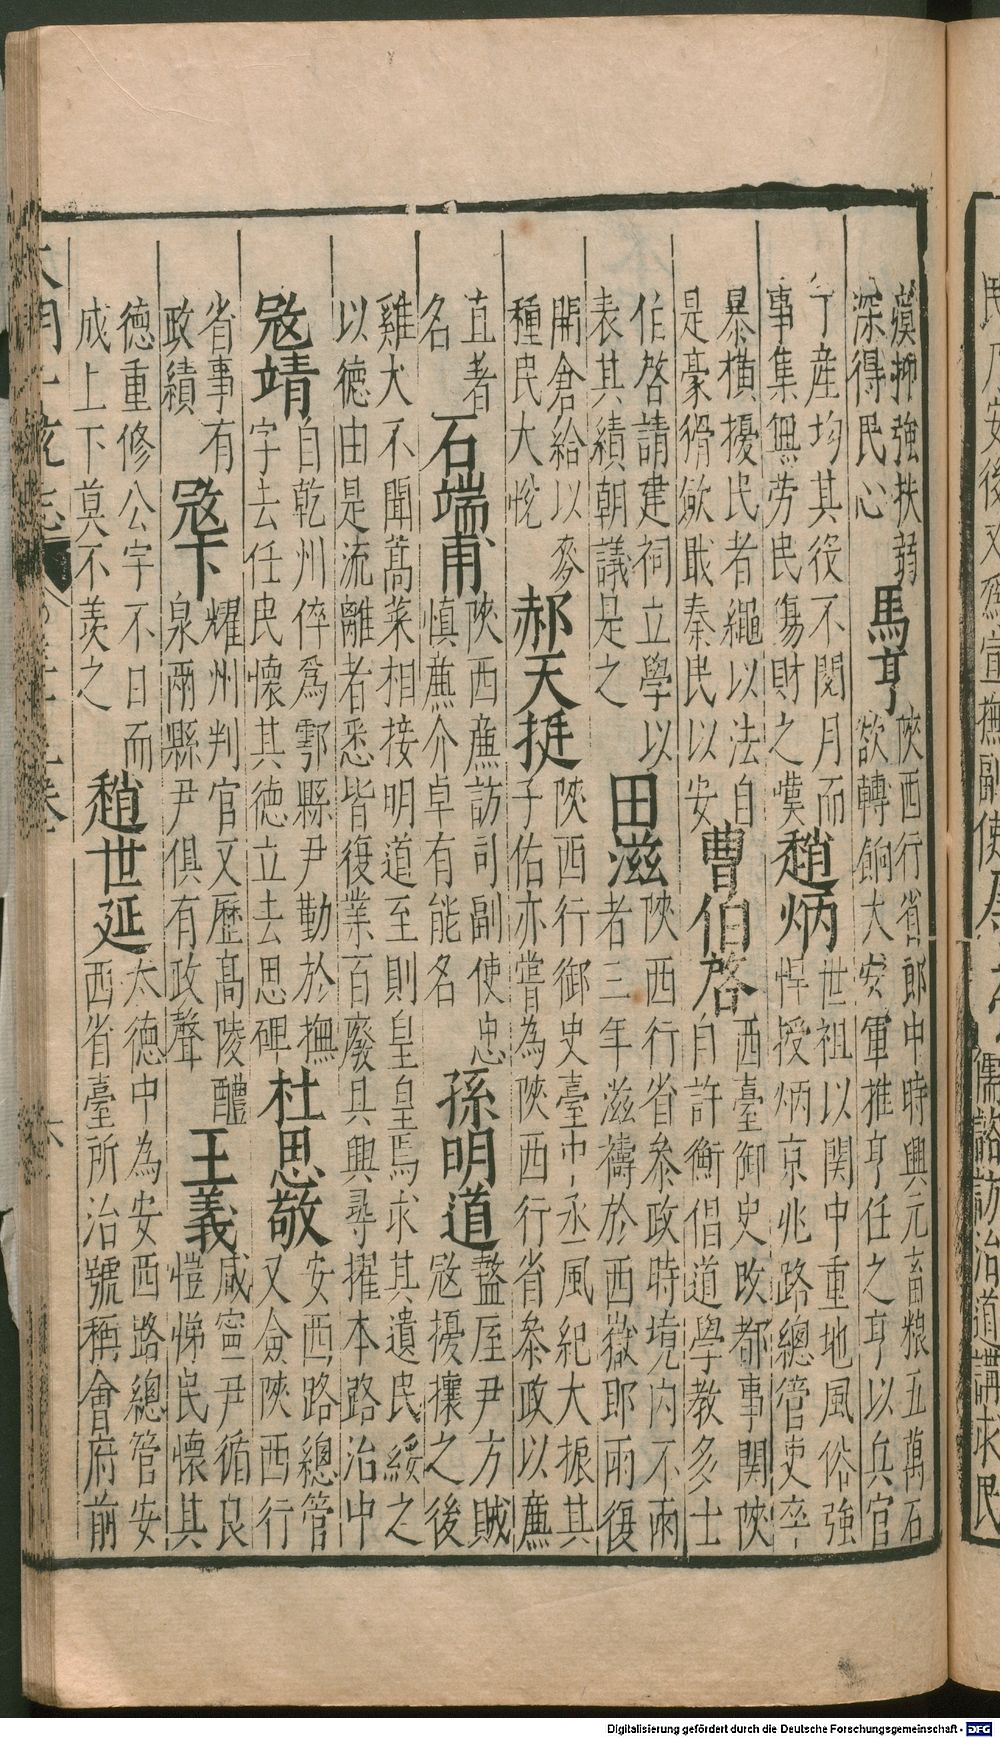 瘼抑強扶弱
深得民心
馬亨
陝西行省郎中時興元畜糧五萬石
欲轉餉大安軍推亨任之亨以兵官
丁產均其役不閱月而
事集無劳民傷財之嘆
趙炳
世祖以関中重地風俗強
悍授炳京兆路總管吏卒
暴橫擾民者繩以法自
是豪猾斂戢秦民以安
曹伯啓
西臺御史改都事関陝
自許衡倡道學教多士
伯啓請建祠立學以
表其績朝議是之
田滋
陝西行省叅政時境內不雨
者三年滋禱於西嶽即雨復
開倉給以麥
種民大悅
郝天挺
陝西行御史臺中丞風紀大振其
子佑亦嘗為陝西行省叅政以㢘
直著
名
石端甫
陝西㢘訪司副使忠
慎㢘介卓有能名
孫明道
盩厔尹方賊
寇擾攘之後
雞犬不聞蒿萊相接明道至則皇皇焉求其遺民綏之
以德由是流離者悉皆復業百廢具興尋擢本路治中
寇靖
自乾州倅為鄠縣尹勤於撫
字去任民懷其德立去思碑
杜思敬
安西路總管
又僉陝西行
省事有
政績
寇下
耀州判官又歷高陵醴
泉兩縣尹俱有政聲
王義
咸寧尹循良
愷悌民懷其
德重修公宇不日而
成上下莫不羨之
趙世延
太德中為安西路總管安
西省臺所治號稱會府前
Digitalisierung gefördert durch die Deutsche Forschungsgemeinschaft - DFG